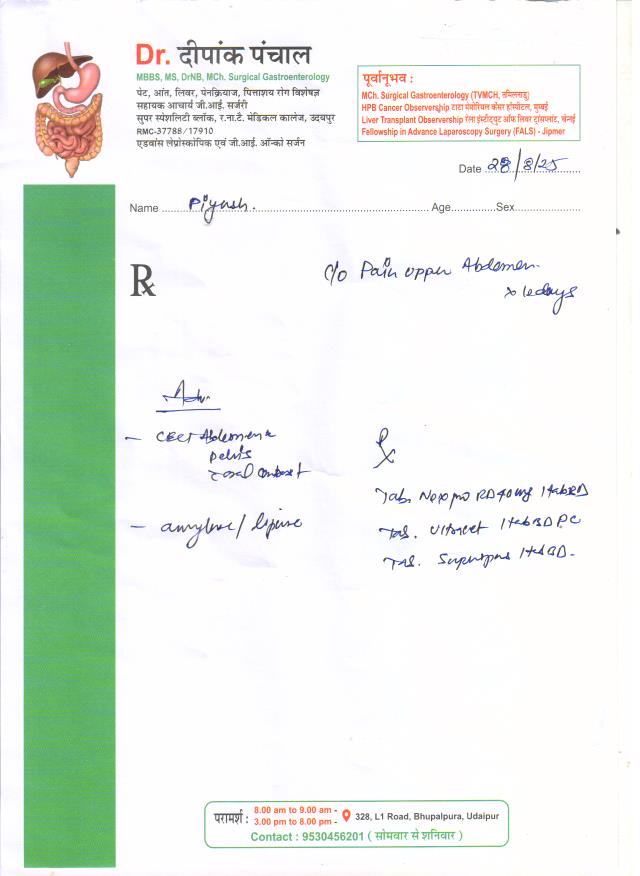 Dr. दीपांक पंचाल
MBBS, MS, DrNB, MCh. Surgical Gastroenterology
पेट, आंत, लिवर, पेनक्रियाज, पित्ताशय रोग विशेषज्ञ
सहायक आचार्य जी.आई. सर्जरी
सुपर स्पेशलिटी ब्लॉक, र.ना.टै. मेडिकल कालेज, उदयपुर
RMC-37788 / 17910
एडवांस लेप्रोस्कोपिक एवं जी.आई. ऑन्को सर्जन
पूर्वानुभव :
MCh. Surgical Gastroenterology (TVMCH, तमिलनाडु)
HPB Cancer Observership टाटा मेमोरियल कैंसर हॉस्पीटल, मुम्बई
Liver Transplant Observership रेला इंस्टीट्यूट ऑफ लिवर ट्रांसप्लांट, चेन्नई
Fellowship in Advance Laparoscopy Surgery (FALS) - Jipmer
Date 28/8/25
Name Piyush. Age Sex
Rx
c/o Pain upper Abdomen
x 10days
Adv.
- CECT Abdomen &
pelvis
oral contrast
- amylase/lipase
Rx
Tab. Nexpro RD 40mg 1tab BD
Tab. 1tab BD PC
Tab. 1tab BD
परामर्श :
8.00 am to 9.00 am -
3.00 pm to 8.00 pm -
328, L1 Road, Bhupalpura, Udaipur
Contact : 9530456201 ( सोमवार से शनिवार )